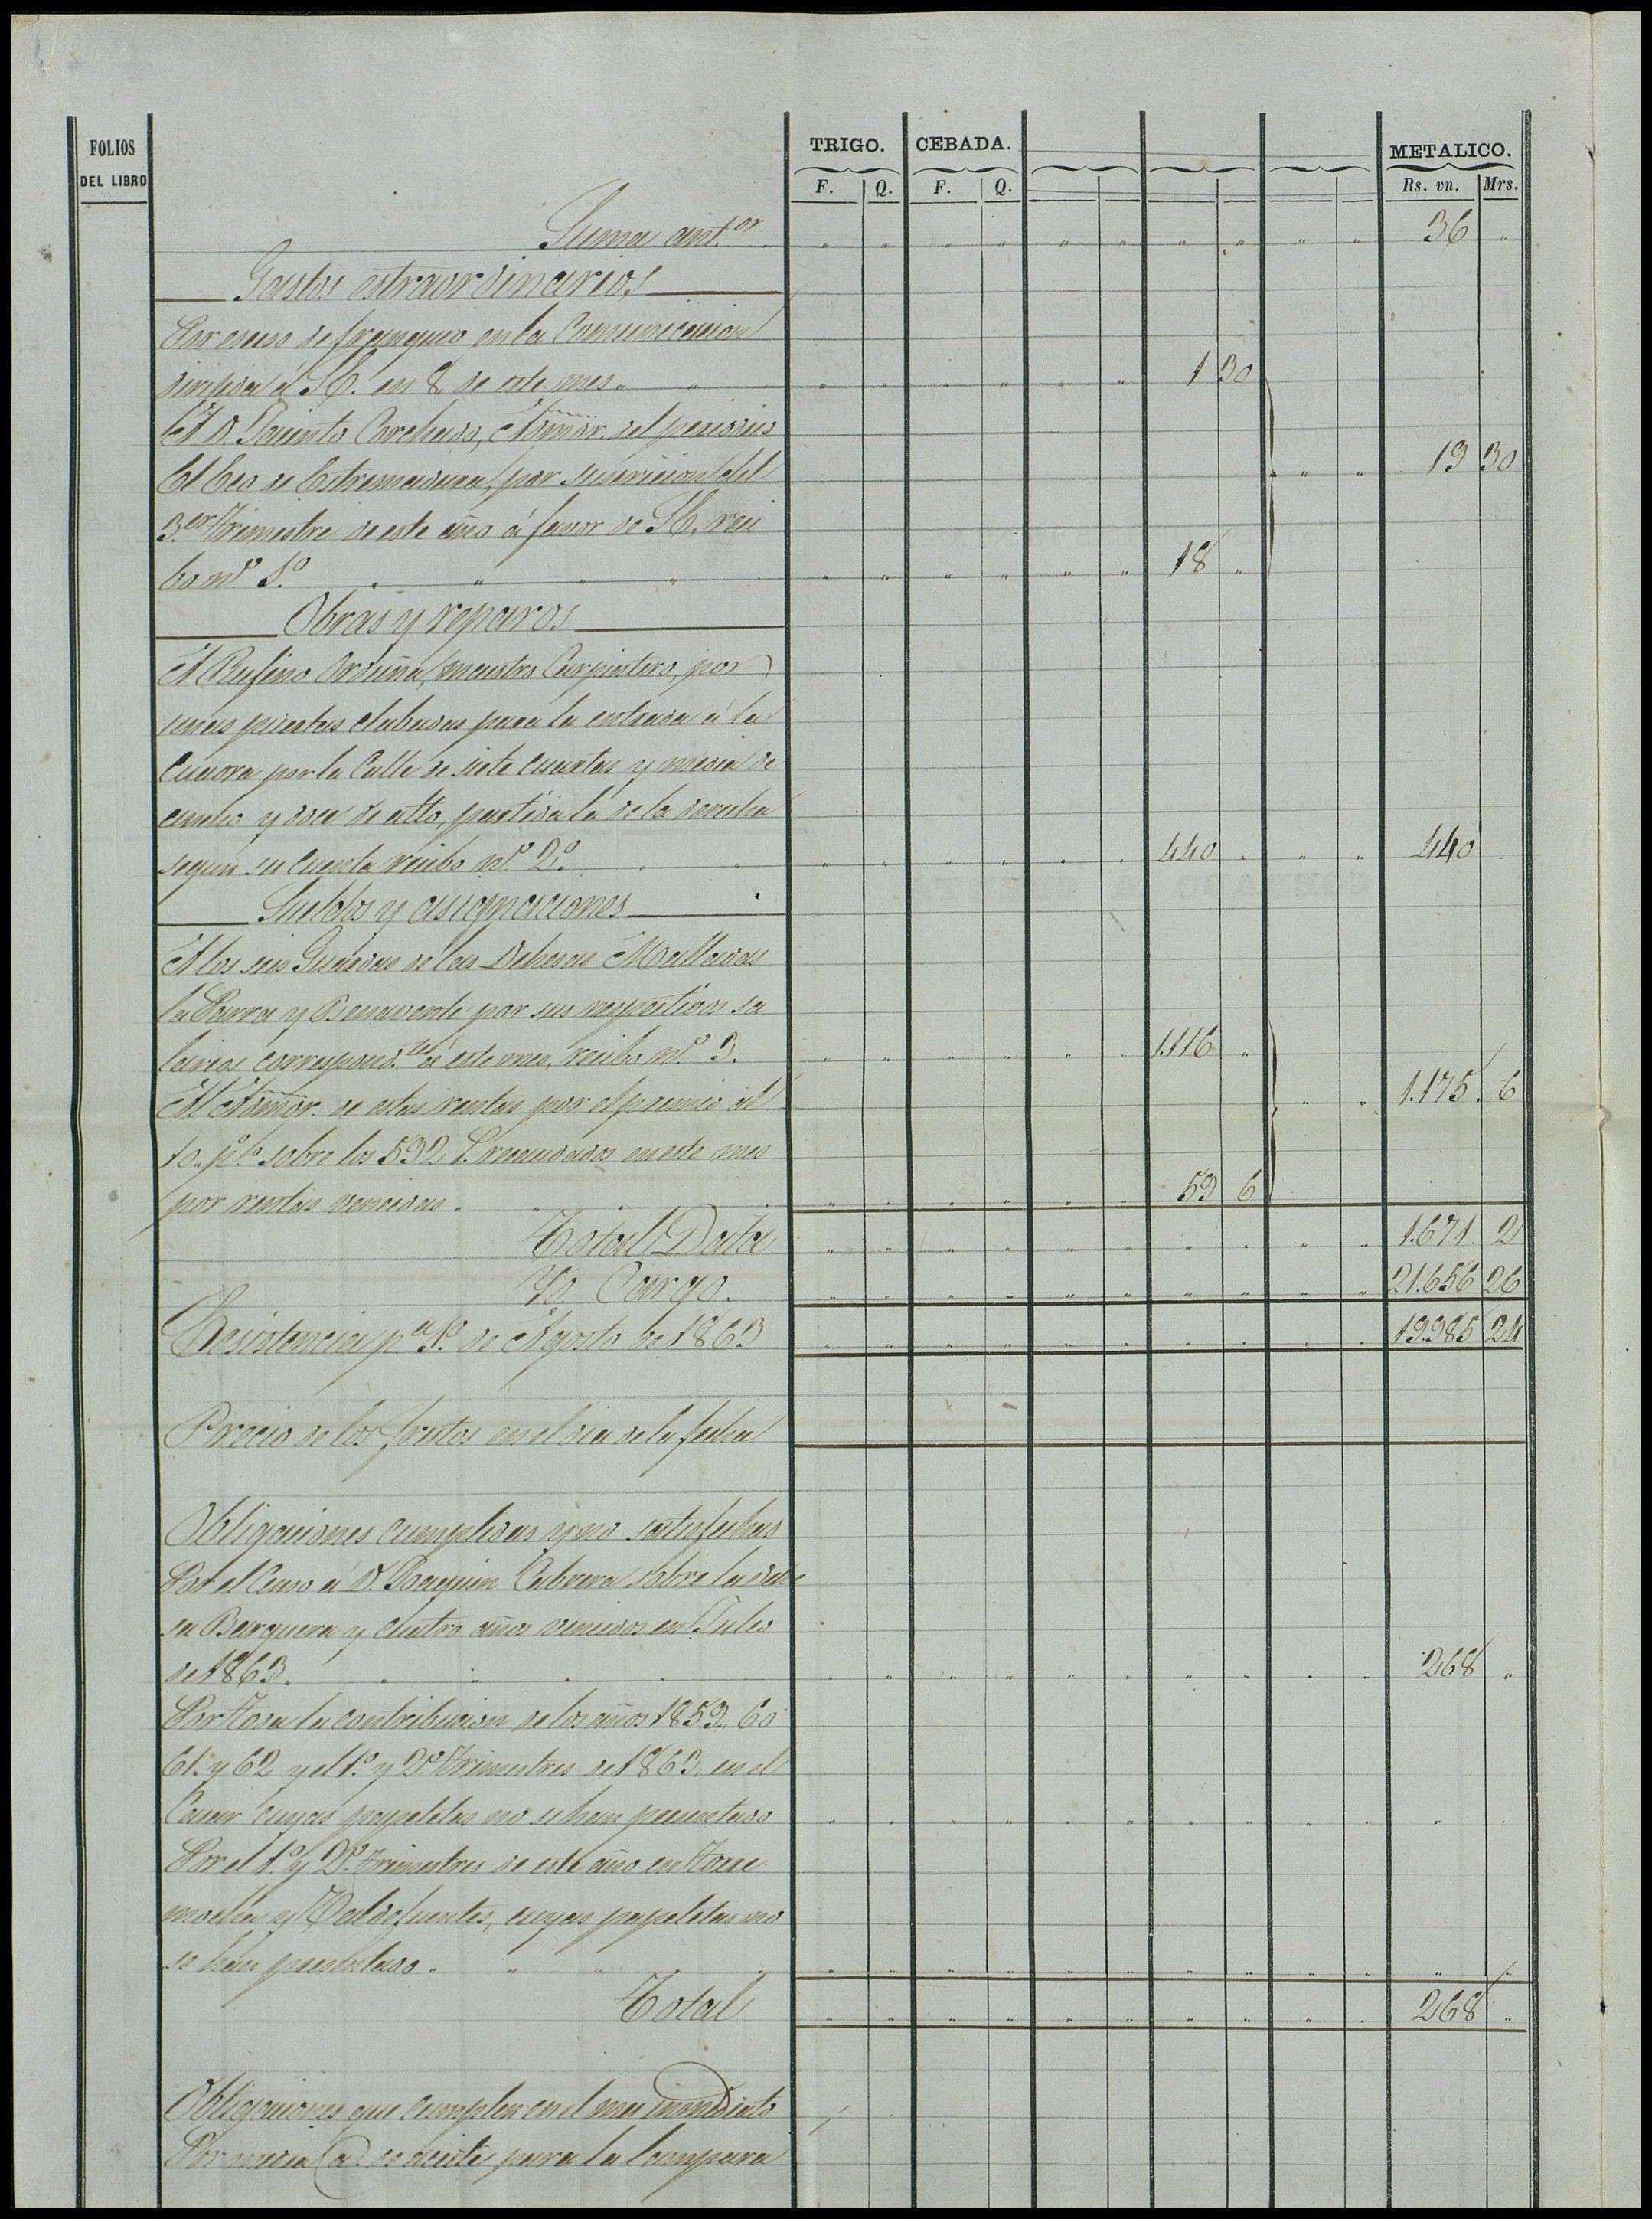 FOLIOS DEL LIBRO TRIGO. CEBADA. METALICO.
F. Q. F. Q. Rs. vn. Mrs.
Suma ant.or 36 "
Gastos estraordinarios
Por esceso de franqueo en la Comunicacion
dirijida á S.E. en 8 de este mes. 1 30
Á D. Jacinto Corchado, Admor. del periódico
El Eco de Estremadura, por suscricion del 19 30
3.er trimestre de este año á favor de S.E. reci
bo n.º 1.º 18 "
Obras y reparos
Á Rufino Orduña, maestro Carpintero, por
unas puertas clabadas para la entrada á la
Cuadra por la Calle de siete cuartas y media de
ancho y doce de alto, partida la de la derecha
segun su cuenta recibo n.º 2.º 440 " " " 440
Sueldos y asignaciones
Á los seis Guardas de las Dehesas Malladas
la Parra y Benavente por sus respectivos sa
larios correspond.tes á este mes, recibo n.º 3. 1.116 "
Al Admor. de estas rentas por el premio al 1.175 6
10 p% sobre los 592 r. recaudados en este mes
por rentas vencidas. 59 6
Total Data 1.671 2
Yd. Cargo. 21.656 26
Ecsistencia p.a 1.º de Agosto de 1863 19.985 24
Precio de los frutos en el dia de la fecha
Obligaciones cumplidas y no satisfechas
Por el Censo á D. Joaquin Cabrera sobre la dehe
sa Barquera y cuatro años vencidos en Julio
de 1863. 268 "
Por toda la contribucion de los años 1859, 60
61 y 62 y el 1.º y 2.º trimestres de 1863, en el
Casar cuyas papeletas no se han presentado
Por el 1.º y 2.º trimestres de este año en Torre
mocha y Valdefuentes, cuyas papeletas no
se han presentado.
Total 268 "
Obligaciones que cumplen en el mes inmediato
Por media @ de aceite para la lampara